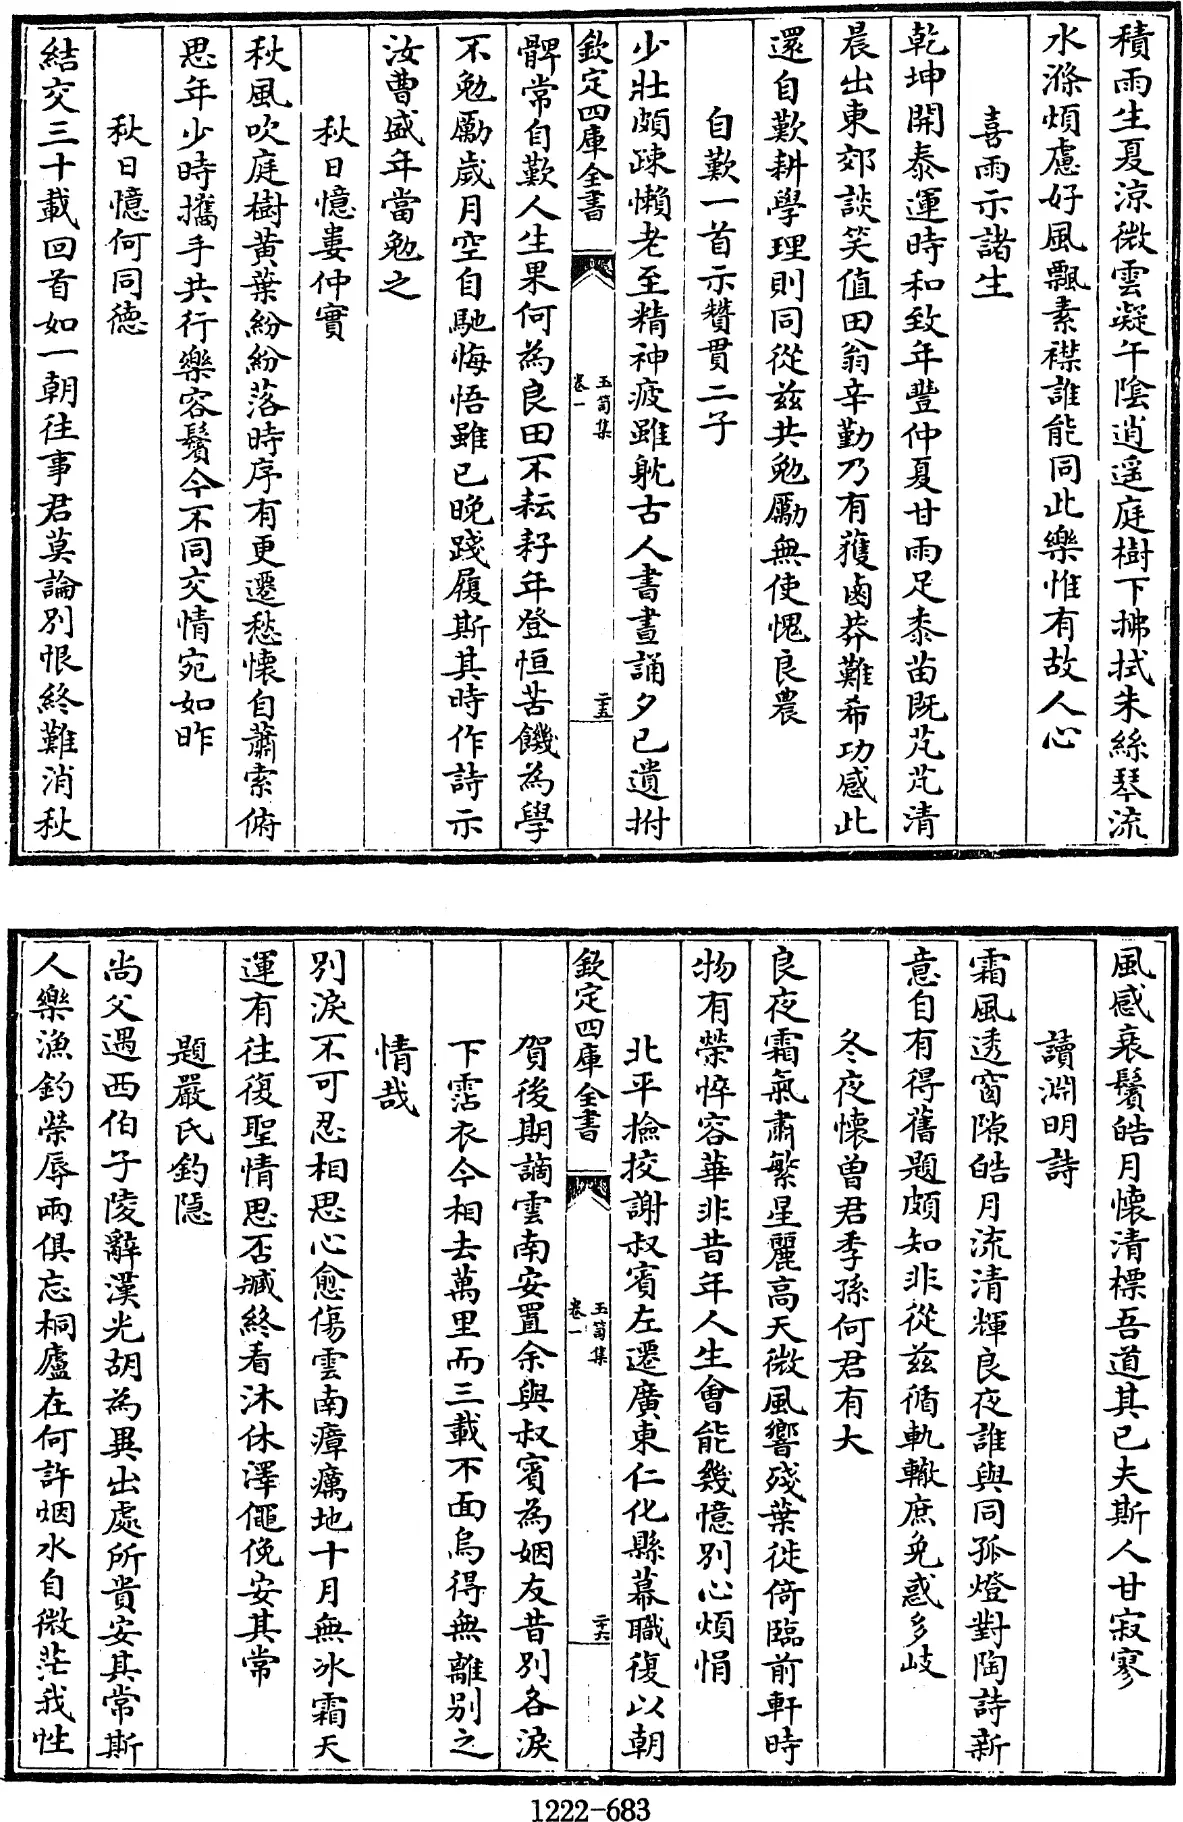 積雨生夏涼微雲凝午陰逍遥庭樹下拂拭朱絲琴流
水滌煩慮好風飄素襟誰能同此樂惟有故人心
喜雨示諸生
乾坤開泰運時和致年豐仲夏甘雨足黍苗既芃芃清
晨出東郊談笑值田翁辛勤乃有蒦鹵莽難希功感此
還自歎耕學理則同從兹共勉勵無使愧良農
自歎一首示贊貫二子
少壯頗疎懶老至精神疲雖躭古人書晝誦夕已遺拊
欽定四庫全書
玉笥集
卷一
二十五
髀常自歎人生果何為良田不耘耔年登恒苦饑為學
不勉勵歲月空自馳悔悟雖已晚踐履斯其時作詩示
汝曹盛年當勉之
秋日憶婁仲實
秋風吹庭樹黄葉紛紛落時序有更遷愁懷自蕭索俯
思年少時攜手共行樂容鬢今不同交情宛如昨
秋日憶何同德
結交三十載回首如一朝往事君莫論別恨終難消秋
風感衰鬢皓月懷清標吾道其已夫斯人甘寂寥
讀淵明詩
霜風透窗隙皓月流清輝良夜誰與同孤燈對陶詩新
意自有得舊題頗知非從兹循軌轍庶免惑多岐
冬夜懷曾君季孫何君有大
良夜霜氣肅繁星麗高天微風響殘葉徙倚臨前軒時
物有榮悴容華非昔年人生會能幾憶別心煩悁
北平撿挍謝叔賓左遷廣東仁化縣幕職復以朝
欽定四庫全書
玉笥集
卷一
二十六
賀後期謫雲南安置余與叔賓為姻友昔別各淚
下霑衣今相去萬里而三載不面烏得無離別之
情哉
別淚不可忍相思心愈傷雲南瘴癘地十月無冰霜天
運有往復聖情思否臧終看沐休澤僶俛安其常
題嚴氏釣隱
尚父遇西伯子陵辭漢光胡為異出處所貴安其常斯
人樂漁釣榮辱兩俱忘桐廬在何許烟水自微茫我性
1222-683